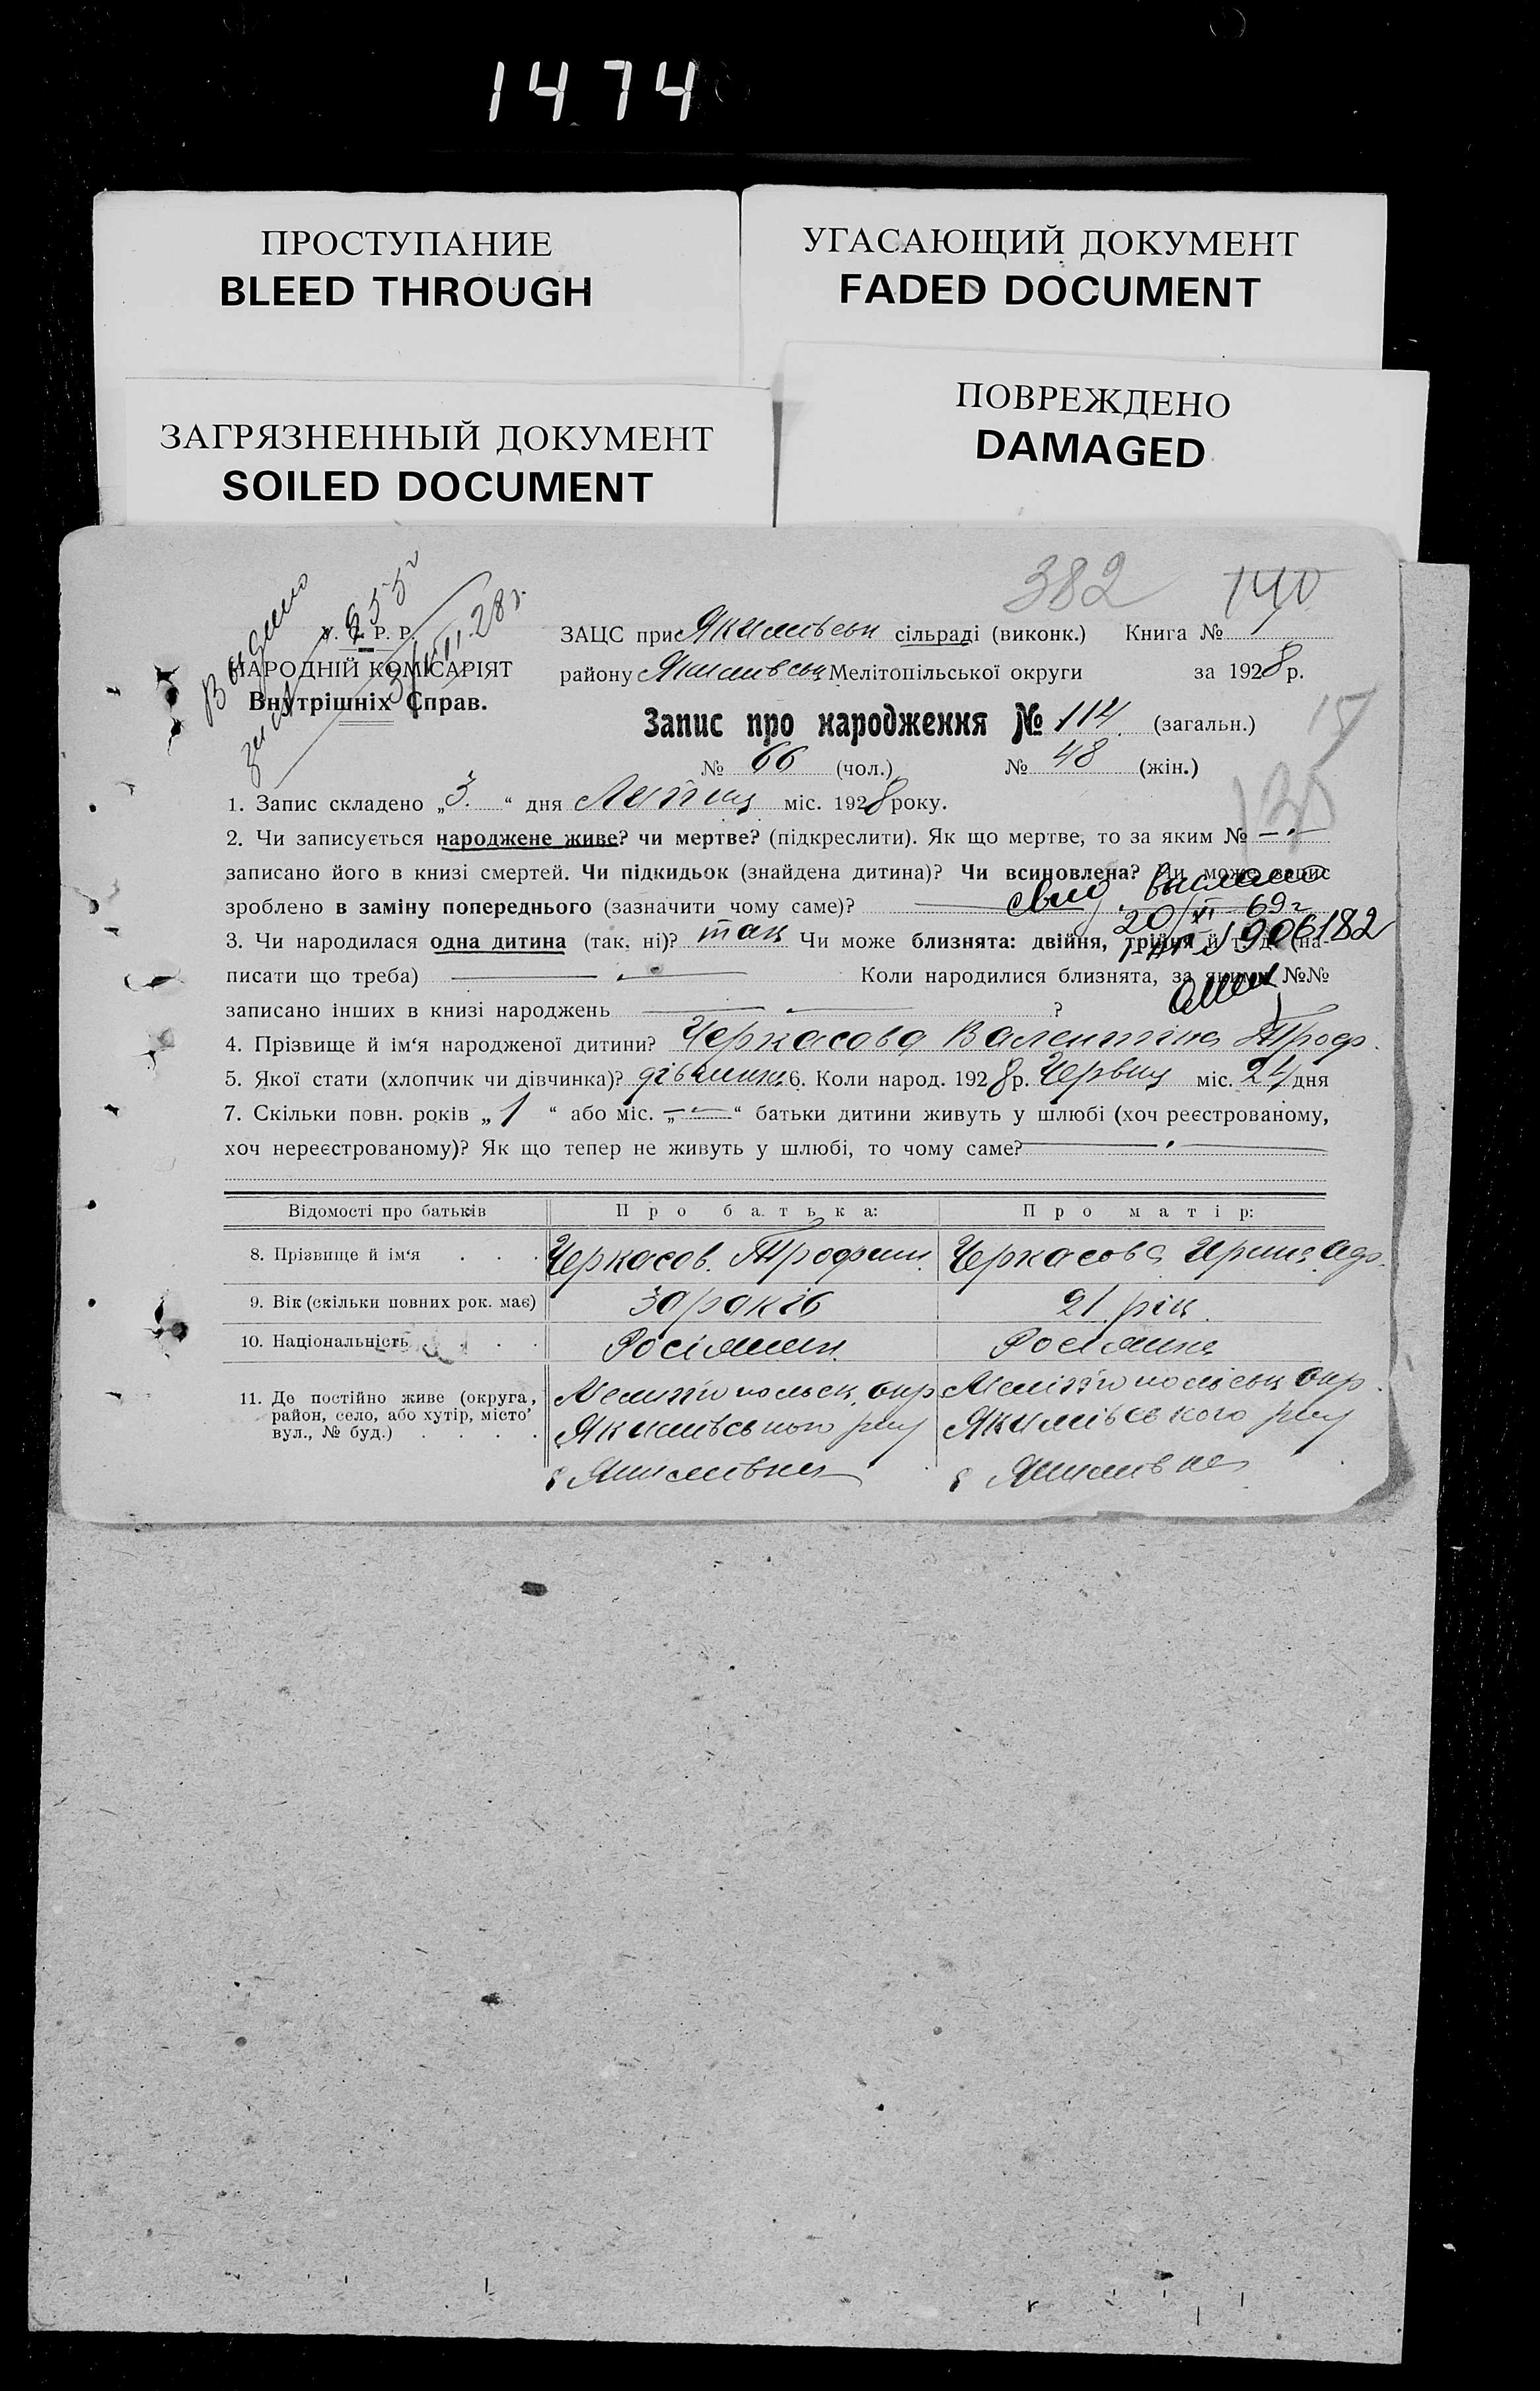 1474
ПРОСТУПАНИЕ
BLEED THROUGH
УГАСАЮЩИЙ ДОКУМЕНТ
FADED DOCUMENT
ЗАГРЯЗНЕННЫЙ ДОКУМЕНТ
SOILED DOCUMENT
ПОВРЕЖДЕНО
DAMAGED
382 140
Видано
28 г.
У. С. Р. Р.
НАРОДНІЙ КОМІСАРІЯТ
Внутрішніх Справ.
ЗАЦС при Якимівськ сільраді (виконк.) Книга №
району Якимівськ Мелітопільської округи за 1928 р.
Запис про народження № 114. (загальн.)
№ 66 (чол.) № 48 (жін.)
1. Запис складено „3.“ дня Липня міс. 1928 року.
2. Чи записується народжене живе? чи мертве? (підкреслити). Як що мертве, то за яким № —
записано його в книзі смертей. Чи підкидьок (знайдена дитина)? Чи всиновлена? Чи може запис
зроблено в заміну попереднього (зазначити чому саме)? —
свид. выслано
20/XI 69 г
906182
3. Чи народилася одна дитина (так, ні)? так Чи може близнята: двійня, трійня й т. д. (на-
писати що треба) — Коли народилися близнята, за якими №№
записано інших в книзі народжень — ?
4. Прізвище й ім‘я народженої дитини? Черкасова Валентіна Троф.
5. Якої стати (хлопчик чи дівчинка)? дівчинка 6. Коли народ. 1928 р. Червня міс. 24 дня
7. Скільки повн. років „1“ або міс. „—“ батьки дитини живуть у шлюбі (хоч реєстрованому,
хоч нереєстрованому)? Як що тепер не живуть у шлюбі, то чому саме? —
Відомості про батьків Про батька: Про матір:
8. Прізвище й ім‘я Черкасов. Трофим. Черкасова Ирина
9. Вік (скільки повних рок. має) 30 років 21 рік
10. Національність Росіянин. Росіянка
11. Де постійно живе (округа, Мелитопольськ. окр Мелітопольськ окр.
район, село, або хутір, місто Якимівського рну Якимівського рну
вул., № буд.)
с Якимівка с Якимівка